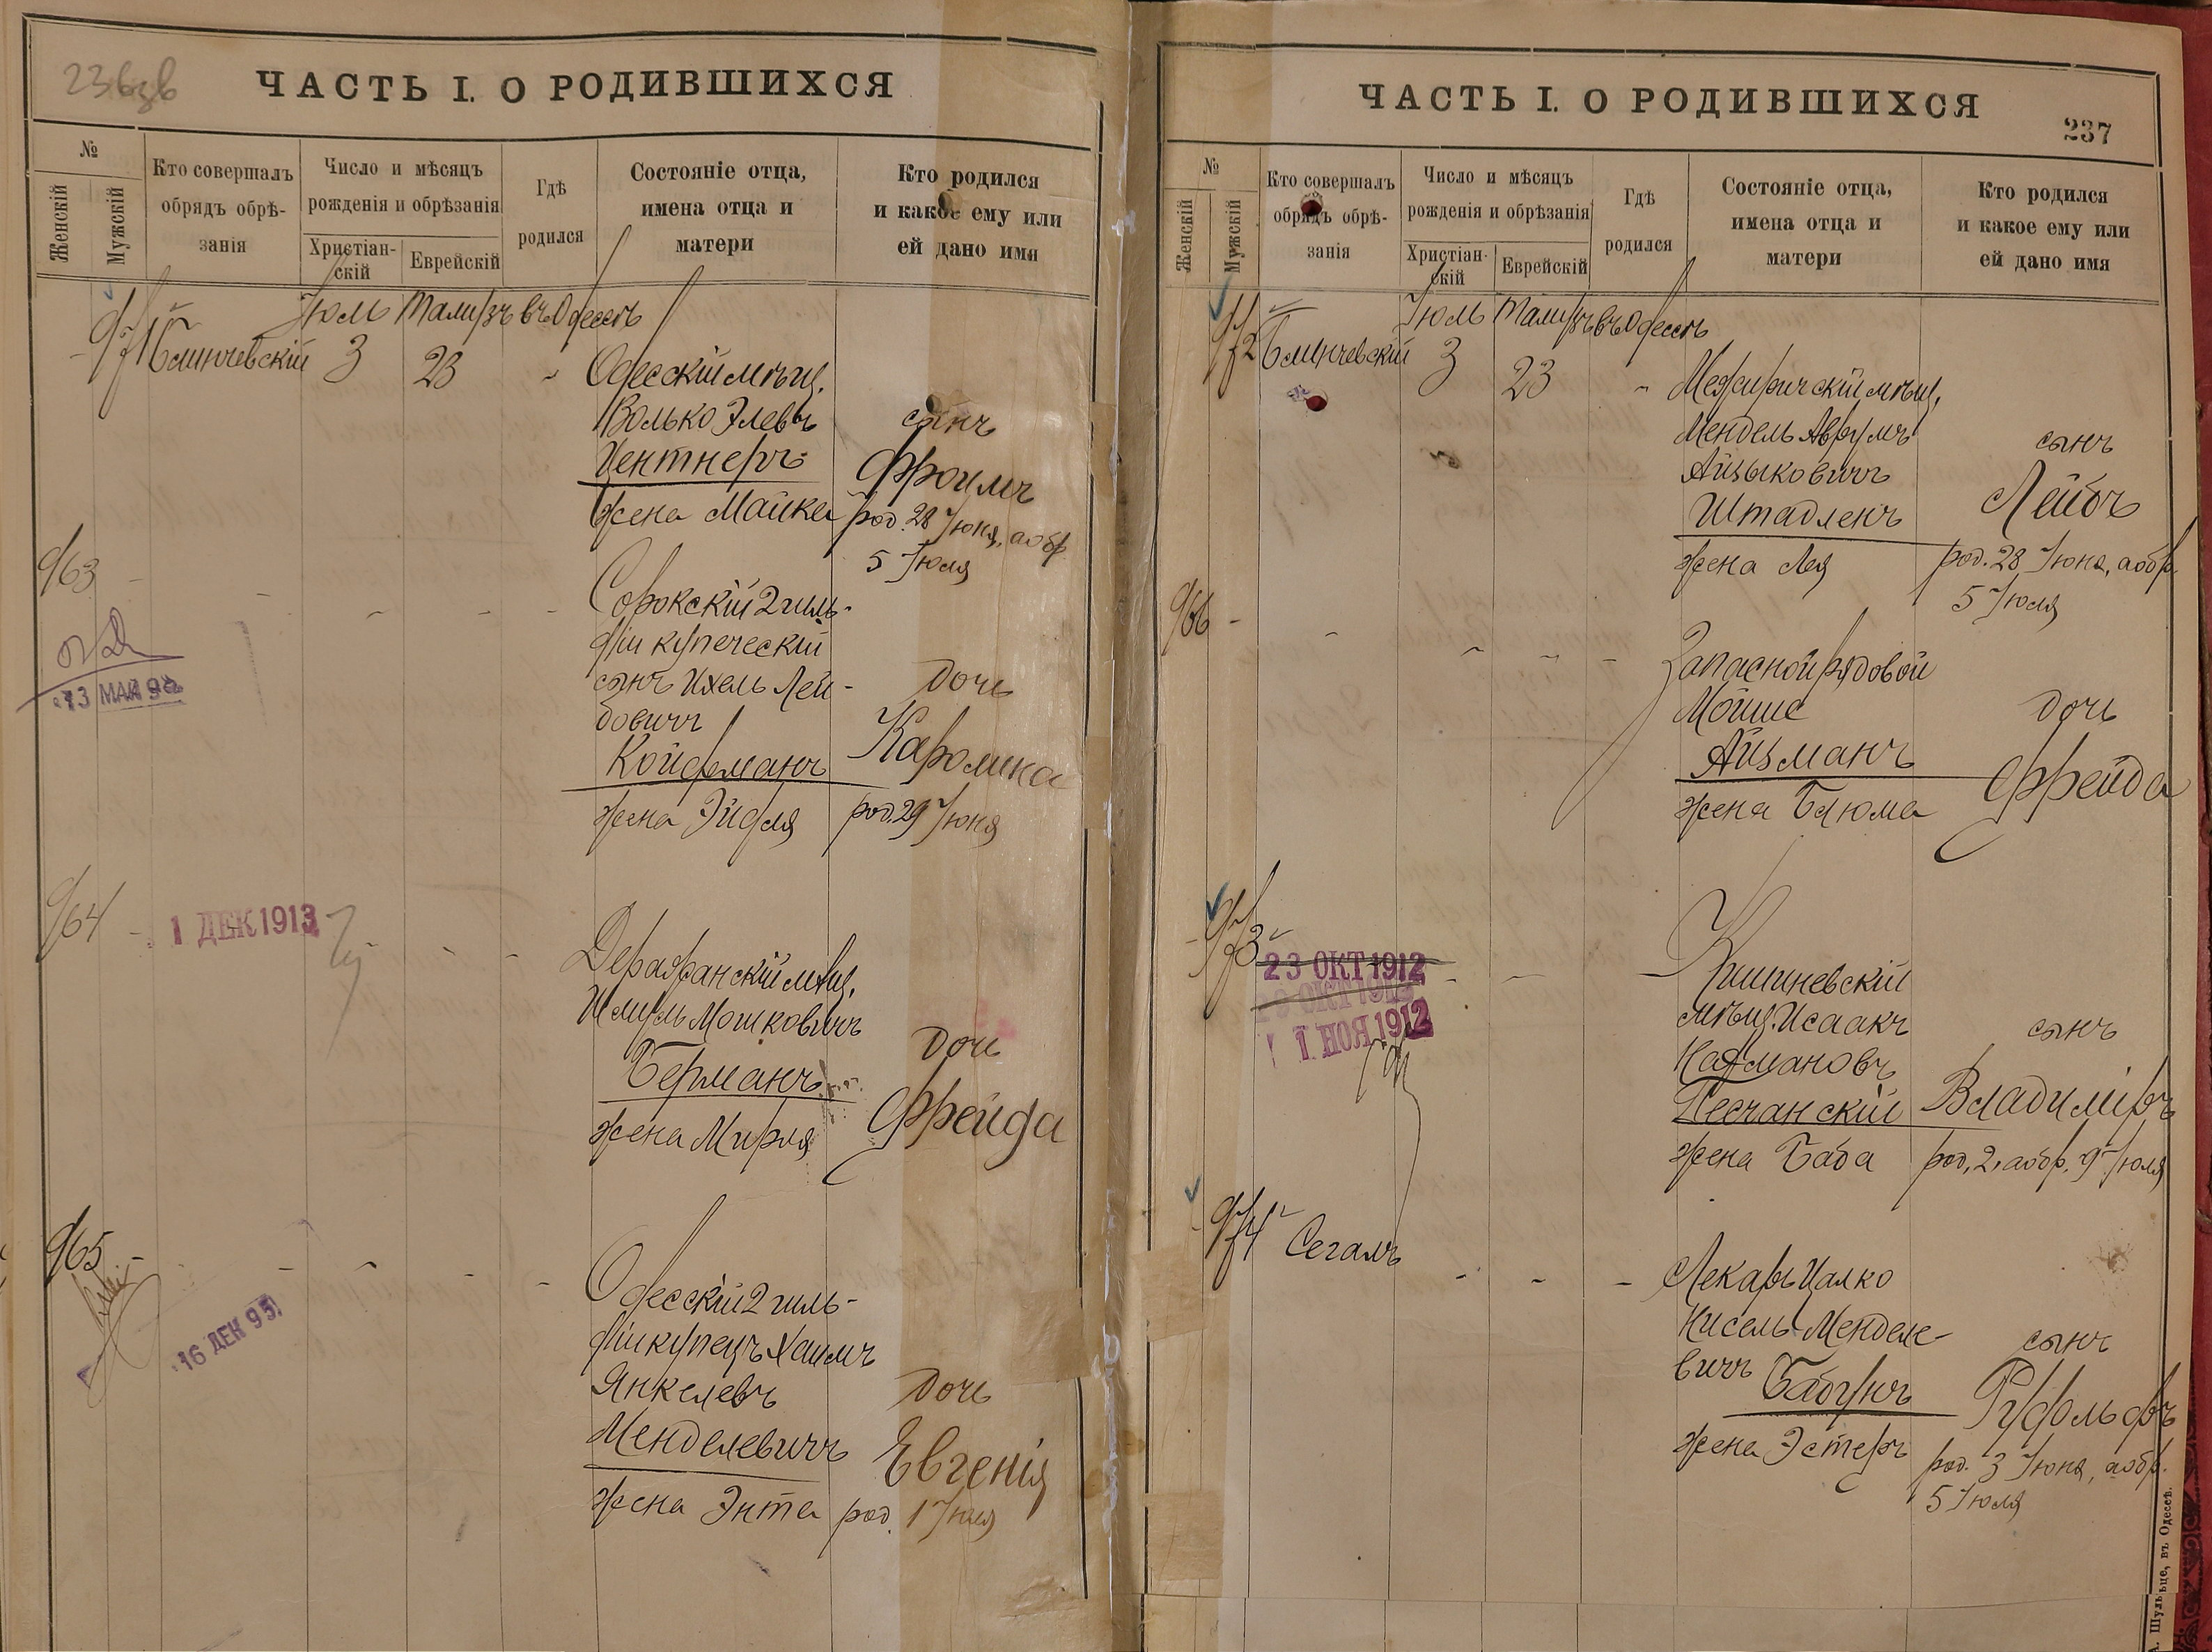 236зв
ЧАСТЬ I. О РОДИВШИХСЯ
№
Женскій
Мужскій
Кто совершалъ
обрядъ обрѣ-
занія
Число и мѣсяцъ
рожденія и обрѣзанія
Христіан-
скій
Еврейскій
Гдѣ
родился
Состояніе отца,
имена отца и
матери
Кто родился
и какое ему или
ей дано имя
Іюль Тамузъ въ Одессѣ
971 Блинчевскій 3 23 Одесскій мѣщ.
Волько Элевъ
Центнеръ
жена Майка
сынъ
Фроимъ
род. 28 Іюня, а обр
5 Іюля
963
13 МАЯ
Сорокскій 2 гиль-
діи купеческій
сынъ Ихель Лей-
бовичъ
Койфманъ
жена Эйдля
дочь
Каролина
род. 29 Іюня
964
1 ДЕК 1913
Деражнанскій мѣщ.
Шмуль Мошковичъ
Берманъ
жена Мирля
дочь
Фрейда
965
16 ДЕК 95
Одесскій 2 гиль-
діи купецъ Хаимъ
Янкелевъ
Менделевичъ
жена Энта
дочь
Евгенія
род. 1 Іюля
ЧАСТЬ I. О РОДИВШИХСЯ
237
№
Женскій
Мужскій
Кто совершалъ
обрядъ обрѣ-
занія
Число и мѣсяцъ
рожденія и обрѣзанія
Христіан-
скій
Еврейскій
Гдѣ
родился
Состояніе отца,
имена отца и
матери
Кто родился
и какое ему или
ей дано имя
Іюль Тамузъ въ Одессѣ
972 Блинчевскій 3 23 Межиричскій мѣщ.
Мендель Аврумъ
Айзыковичъ
Штадленъ
жена Лея
сынъ
Лейбъ
род. 28 Іюня, а обр.
5 Іюля
966
Запасной рядовой
Мойше
Айзманъ
жена Блюма
дочь
Фрейда
973
23 ОКТ 1912
1 НОЯ 1912
Кишиневскій
мѣщ. Исаакъ
Нахмановъ
Песчанскій
жена Баба
сынъ
Владиміръ
род. 2, а обр. 9 Іюля
974 Сегалъ
Лекарь Цалко
Нисель Менделе-
вичъ Бабунъ
жена Эстеръ
сынъ
Рудольфъ
род. 3 Іюня, а обр.
5 Іюля
А. Шульце, въ Одессѣ.